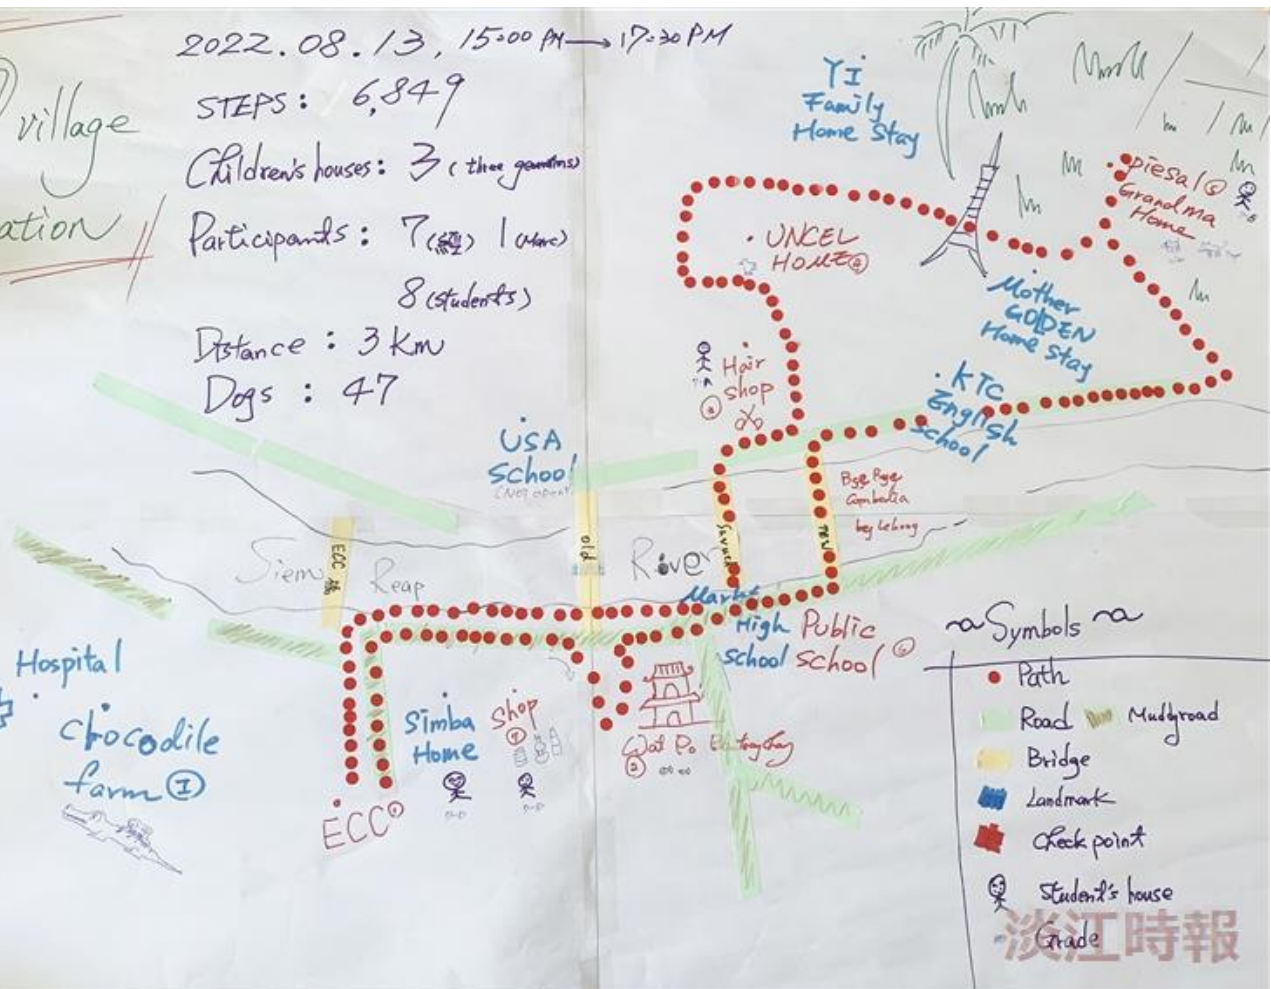 2022.08.13, 15:00 PM → 17:30 PM
village
ation
STEPS: 6,849
Children's houses: 3 (three
Participants: 7 1
8 (students)
Distance: 3 km
Dogs: 47
YI
Family
Home Stay
piesal
Grandma
Home
UNCEL
HOME
Mother
GOLDEN
Home Stay
Hair
shop
KTC
English
school
USA
School
(Not open)
Bye Bye
Cambodia
ECC
old
Siem Reap River
Market
High
School
Public
School
Hospital
Crocodile
farm
Simba
Home
Shop
Wat Po
ECC
~Symbols~
Path
Road
Mudyroad
Bridge
Landmark
Check point
Student's house
Grade
淡江時報